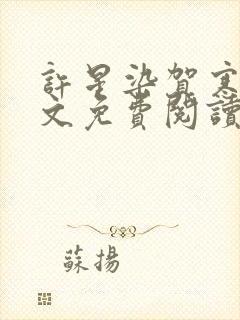 許星染賀寒
文免費閱讀
蘇揚